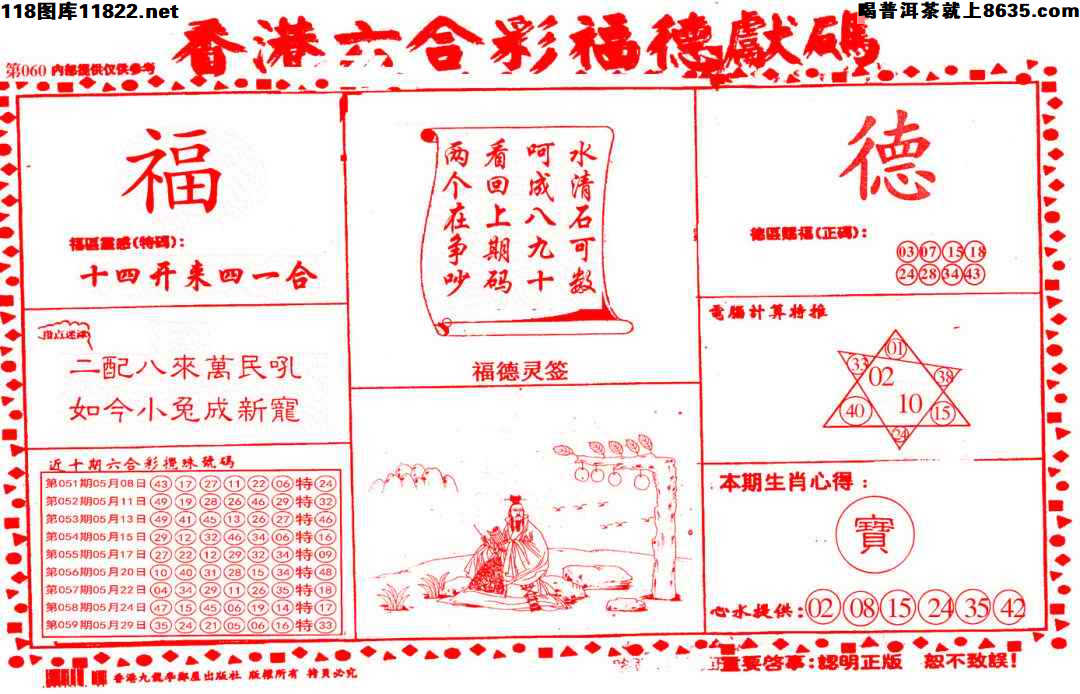 118图库11822.net
喝普洱茶就上8635.com
香港六合彩福德獻碼
第060 内部提供仅供参考
福
福區靈感(特碼):
十四开来四一合
二配八來萬民吼
如今小兔成新寵
近十期六合彩攪珠號碼
第051期05月08日 43 17 27 11 22 06 特 24
第052期05月11日 49 19 28 26 46 29 特 32
第053期05月13日 49 41 45 13 26 27 特 46
第054期05月15日 29 12 32 46 34 06 特 16
第055期05月17日 27 22 12 29 32 34 特 09
第056期05月20日 10 40 31 28 15 34 特 48
第057期05月22日 04 34 29 11 26 35 特 18
第058期05月24日 47 15 45 06 19 14 特 17
第059期05月29日 35 24 21 05 06 16 特 33
水清石可数
呵成八九十
看回上期码
两个在争吵
福德灵签
德
德區賜福(正碼):
03 07 15 18
24 28 34 43
電腦計算特推
01
33 02 38
40 10 15
24
本期生肖心得:
寶
心水提供: 02 08 15 24 35 42
重要啓事:認明正版 恕不致誤!
出版社 版權所有 必究